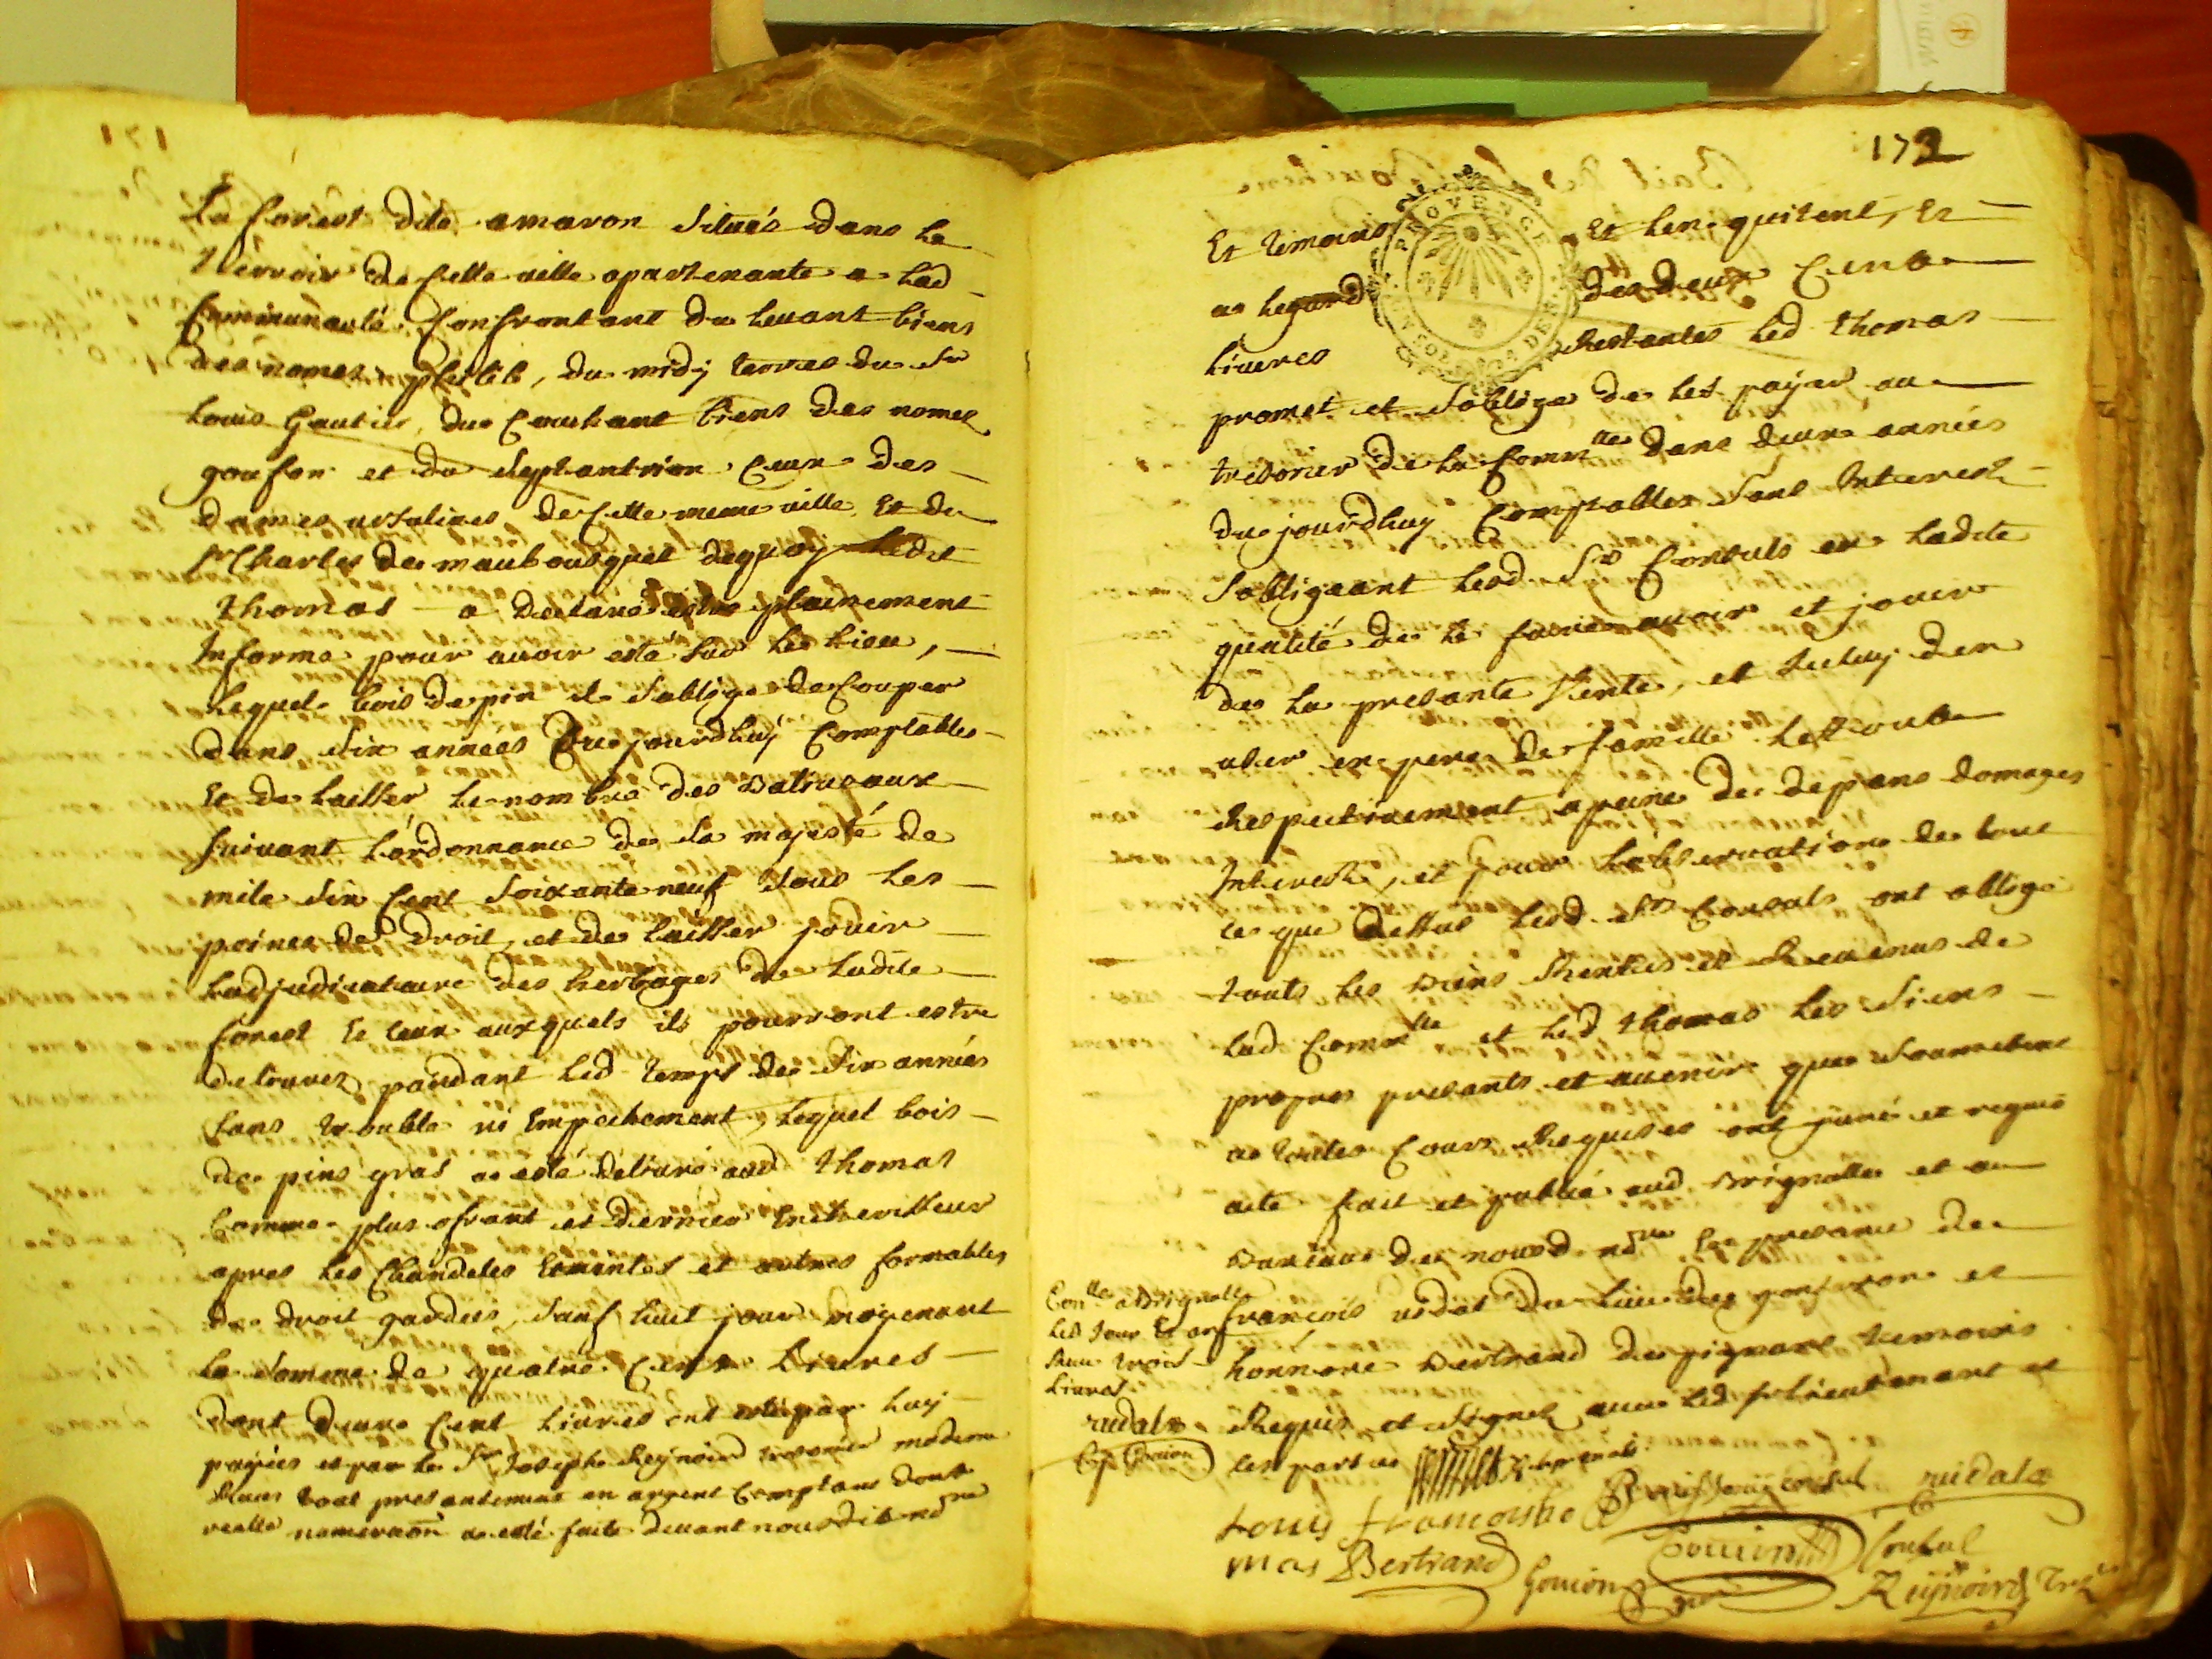 171
La forest dite amaron scituée dans le
terroir de cette ville apartenante a lad
Communauté Confrontant du levant biens
des nomes philib, du midy terres du Sr
Louis Gautier, du Couchant biens des nomes
gonfon et du septantrion ceux des
dames ursulines de cette meme ville Et de
Sr Charles de maubousquet dequoy ledit
thomas a declaré estre plainement
Informé pour avoir esté sur le lieu,
lequel bois de pin il soblige de Couper
dans six années du jourdhuy Comptables
Et de laisser le nombre des Baliveaux
suivant l'ordonnance de sa majesté de
mile six Cent soixante neuf sous les
peines de droit, et de laisser jouir
ladjudicataire des herbages de ladite
forest Et ceux auxquels ils pourront estre
delivrez pandant led temps de six années
sans trouble ni Empechement, lequel bois
de pins gras a esté delivré aud thomas
Comme plus ofrant et dernier Encherisseur
apres les Chandeles Emantes et autres formables
de droit gardées, sauf huit jour moyenant
la somme de quatre Cents Livres
dont deux Cent livres ont esté par luy
payées et par le Sr Joseph Reynoird tresorier moderne
Reçus tout presantement en argent Comptant dont
realle numeraõn a esté faite devant nousdit no.re
172
Et temoins Et len quitent, Et
a legard des deux Cents
livres Restantes led thomas
promet et soblige de les payer au
tresorier de la Comm.tté dans deux années
du jourdhuy Comptables sans Interest
sobligeant lesd. Srs Consuls en ladite
qualité de le faire avoir et jouir
de la presante Vente, et Iceluy den
user en pere de famille le tout
Respectivement a peine de depans domages
Interests, et pour lobservation de tout
ce que dessus lesd. Srs Consuls ont obligé
touts les Biens Rentes et Revenus de
lad Comm.tté et led thomas les siens
propres presants et avenir que soumetent
a toutes Cours Requises ont juré et requis
acte fait et publié aud Brignolle et au
Bureau de nousd. no.re En presance de
françois vidal du lieu de gonfaron et
honnoré Bertrand de pignans temoins
Requis et signez avec led Sr lieutenant et
les parties
Con.llé a Brignolle
led jour Et an
Reçu trois
livres
vidal
Louis françois tho
mas Bertrand
Consul
vidal
Gouion
Consul
Gouion
Reynoird Tres.r